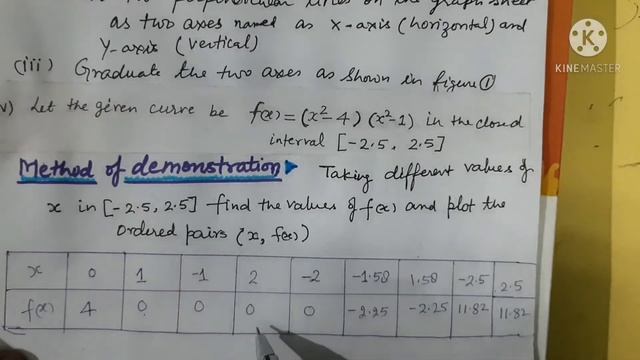 lines on the graph sheet
as two axes named as X-axis (horizontal) and
Y-axis (vertical)
(iii) Graduate the two axes as shown in figure ①
KINEMASTER
v) Let the given curve be f(x) = (x²-4) (x²-1) in the closed
interval [-2.5, 2.5]
Method of demonstration Taking different values of
x in [-2.5, 2.5] find the values of f(x) and plot the
ordered pairs (x, f(x))
x 0 1 -1 2 -2 -1.58 1.58 -2.5 2.5
f(x) 4 0 0 0 0 -2.25 -2.25 11.82 11.82